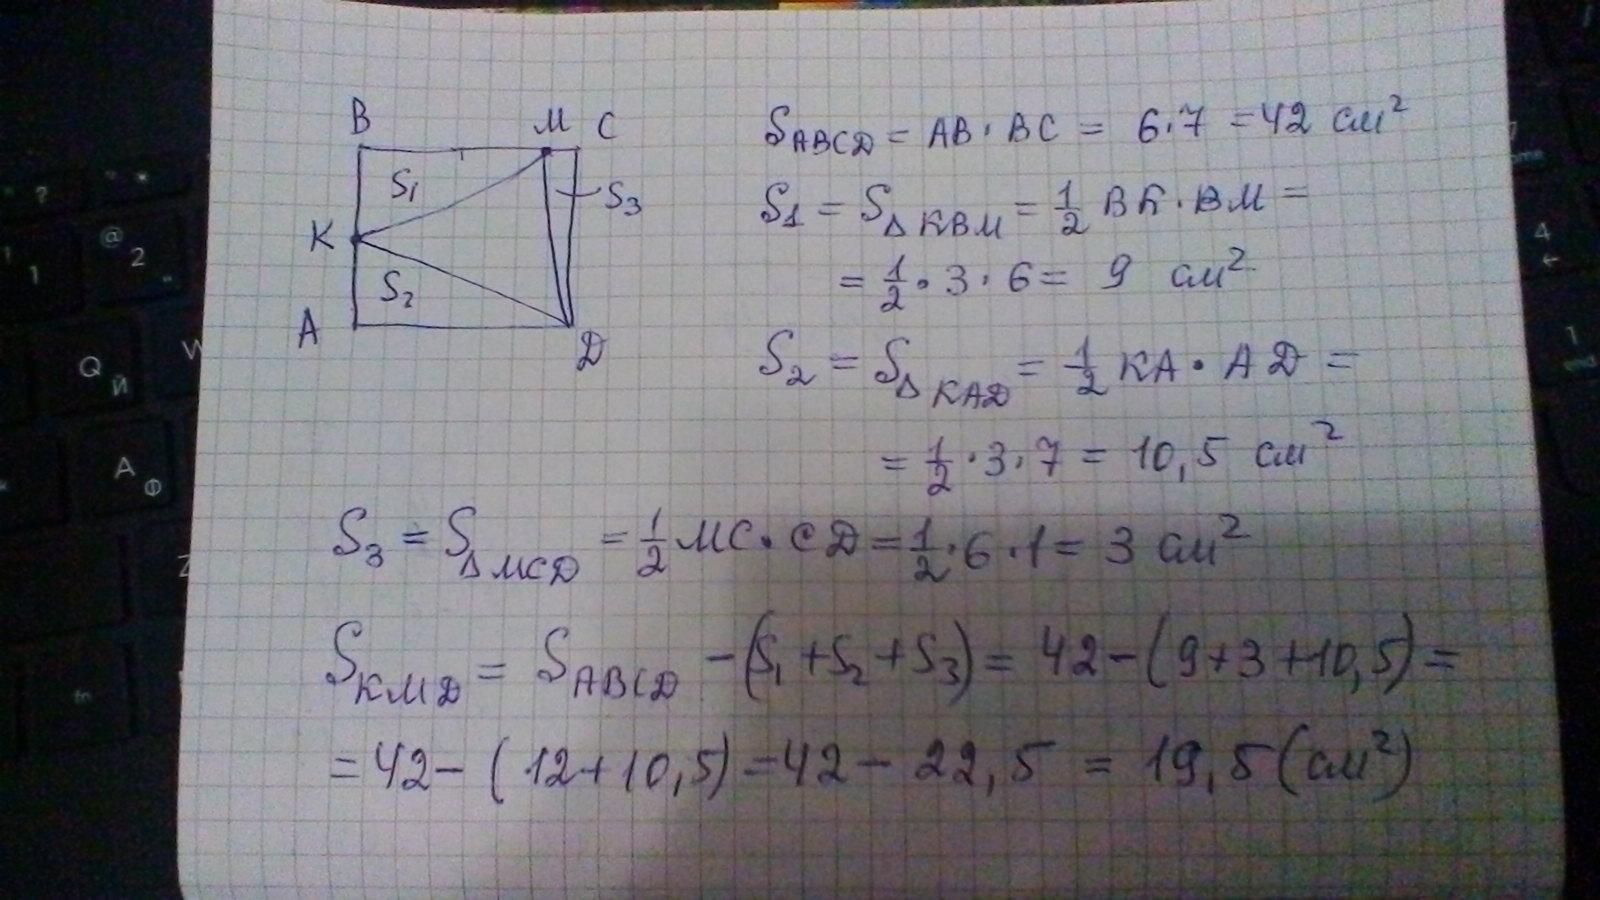 B M C
S₁
S₃
K
S₂
A
D
S_ABCD = AB · BC = 6·7 = 42 см²
S1 = S_ΔKBM = 1/2 BK · BM =
= 1/2 · 3 · 6 = 9 см²
S2 = S_ΔKAD = 1/2 KA · AD =
= 1/2 · 3 · 7 = 10,5 см²
S3 = S_ΔMCD = 1/2 MC · CD = 1/2 · 6 · 1 = 3 см²
S_KMD = S_ABCD − (S₁ + S₂ + S₃) = 42 − (9 + 3 + 10,5) =
= 42 − (12 + 10,5) = 42 − 22,5 = 19,5 (см²)
?
*
1
@
2
"
Q
Й
W
A
Ф
Z
fn
4
←
1
end